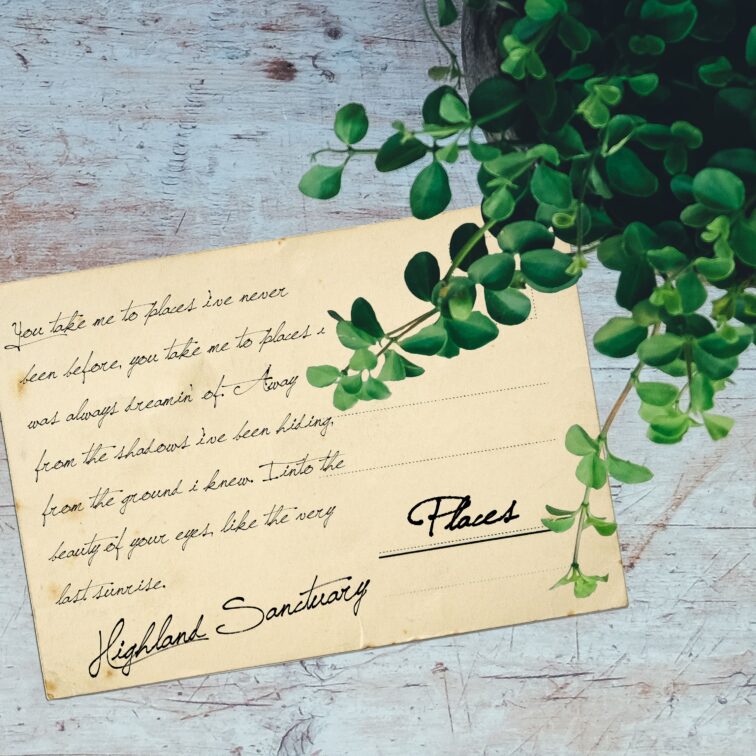 You take me to places i've never
been before, you take me to places i
was always dreamin' of. Away
from the shadows i've been hiding,
from the ground i knew. Iinto the
beauty of your eyes, like the very
last sunrise.
Highland Sanctuary
Places